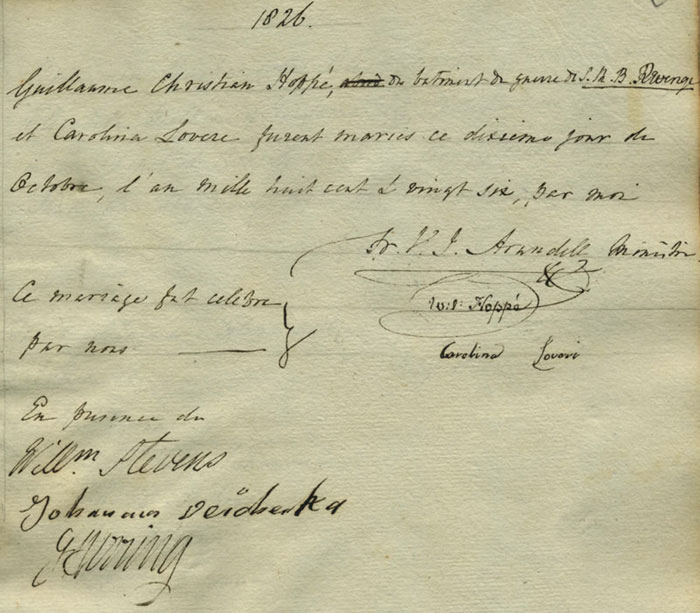 1826.
Guillaume Christian Hoppé, du batiment de guerre de S.M.B. Revenge
et Carolina Lovere furent mariés ce dixieme jour de
Octobre, l'an mille huit cent & vingt six, par moi
Fr. V. J. Arundell Ministre
Ce mariage fut celebre
par nous
W: C: Hoppé
Carolina Loveri
En presence de
Willm Stevens
Johannes